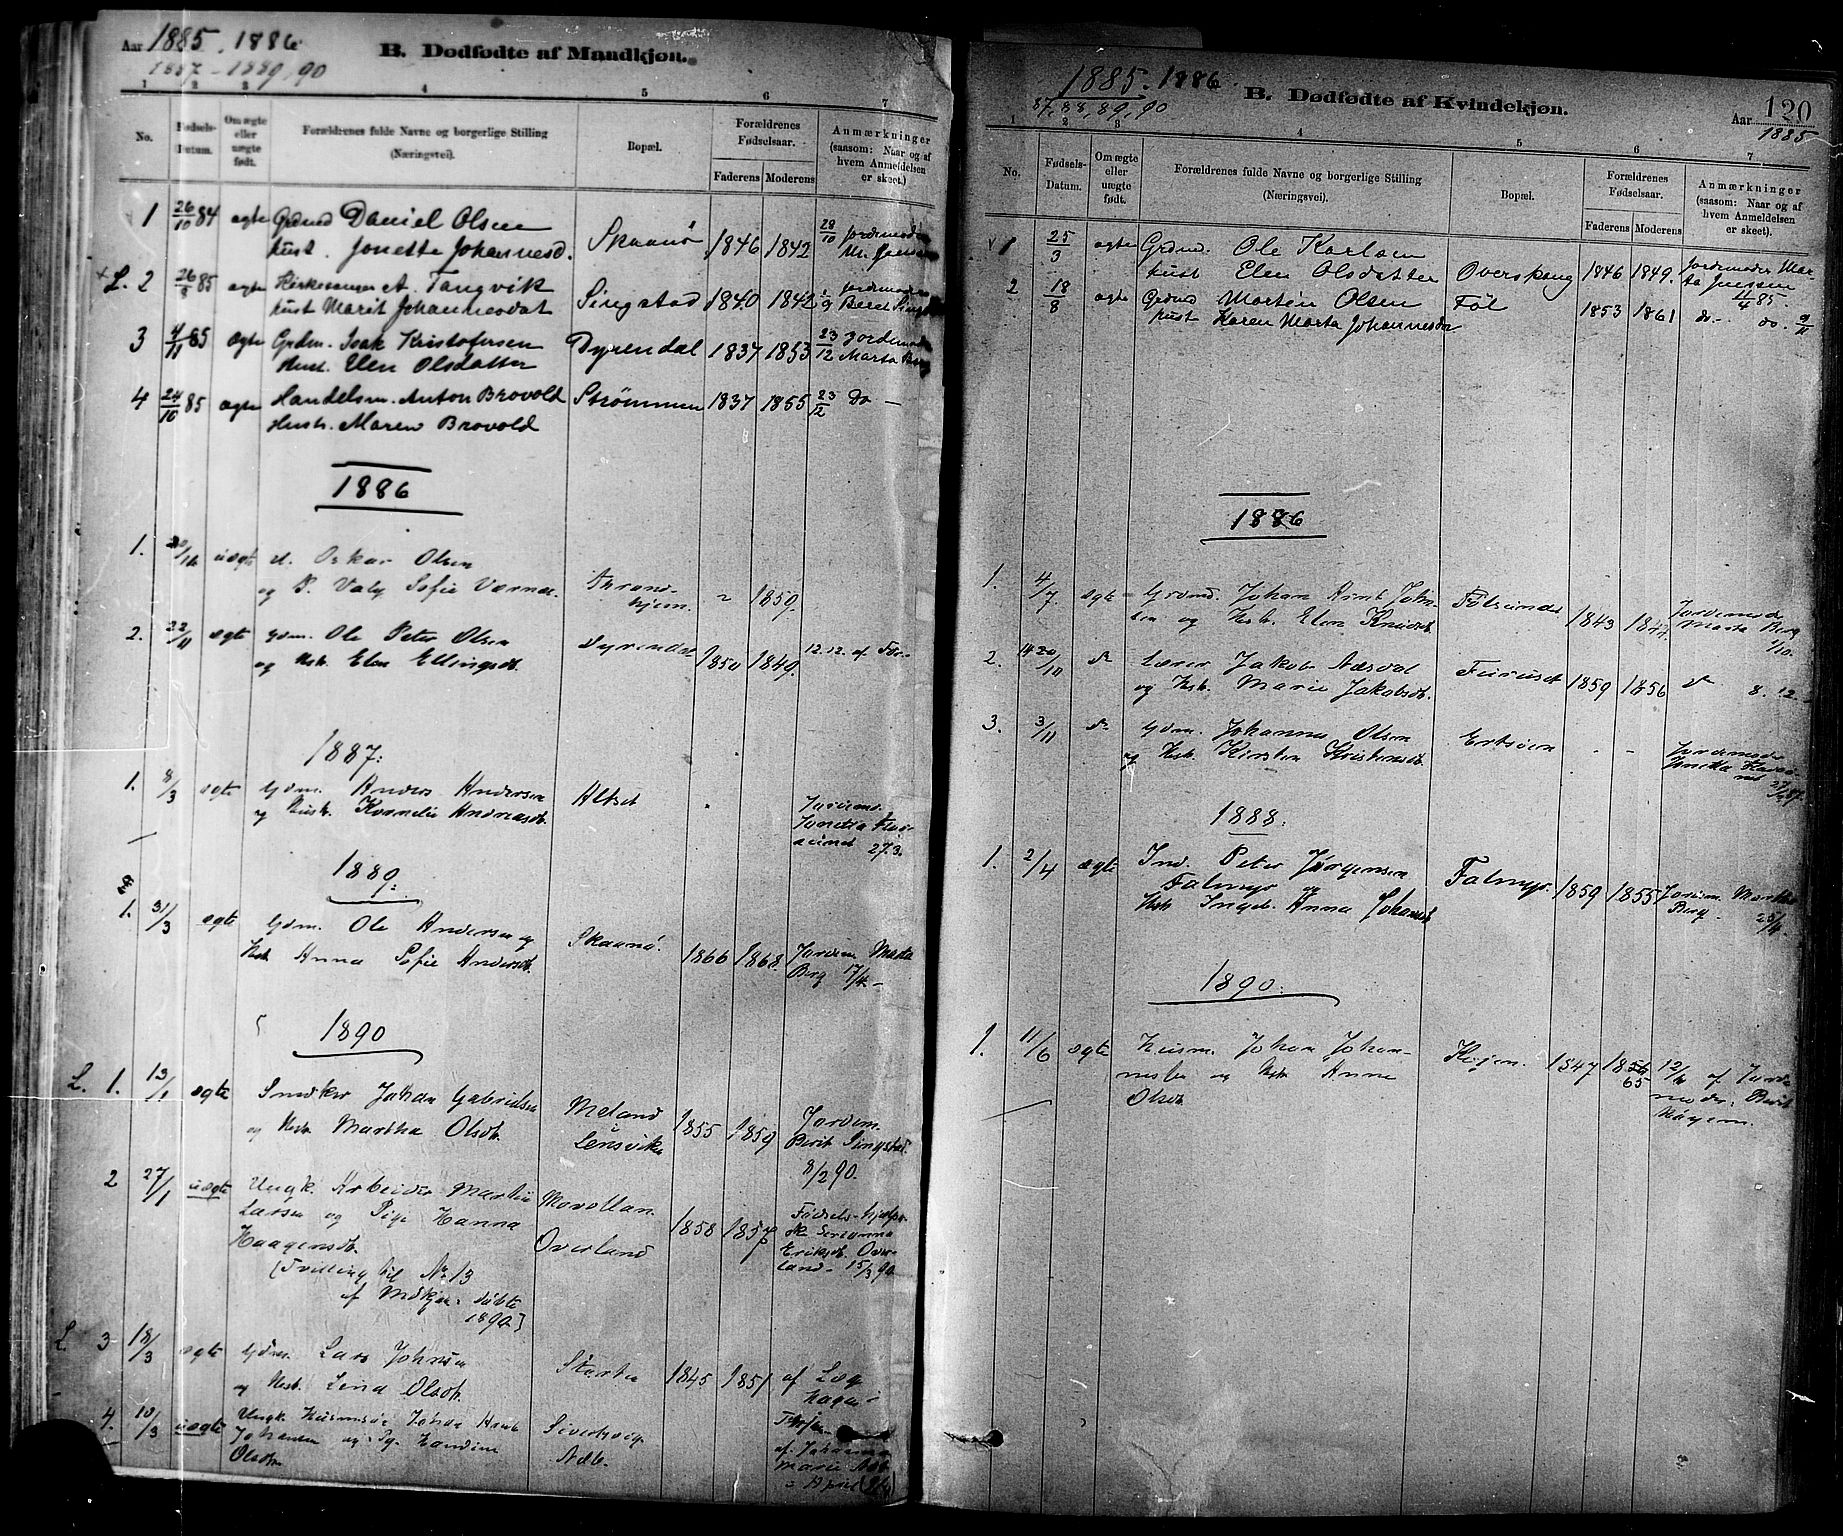 Aar 1885, 1886
B. Dødfødte af Mandkjøn.
1887 - 1889, 90
1 2 3 4 5 6 7
No.
Fødsels-
Datum.
Om ægte
eller
uægte
født.
Forældrenes fulde Navne og borgerlige Stilling
(Næringsvei).
Bopæl.
Forældrenes
Fødselsaar.
Faderens Moderens
Anmærkninger
(saasom: Naar og af
hvem Anmeldelsen
er skeet.)
1 26/10 84 ægte Grdmd Daniel Olsen
Hust. Jonetta Johannesd. Skaanø 1846 1842 28/10 Jordemoder
L. 2 26/8 85 ægte Kirkesanger A. Tangvik
Hust Marit Johannesdat Singstad 1840 1842 Jordemoder
Beret
3 4/11 85 ægte Grdm. Isak Kristofersen
Hust. Elen Olsdatter Dyrendal 1837 1853 23/12 Jordemoder
Marta Berg
4 24/10 85 ægte Handelsm. Anton Brovold
Hustr. Maren Brovold Strømmen 1837 1855 23/12 Do —
1886
1. uægt Oskar Olsen
og P. Valg Sofie Værnes Thrond-
hjem. 1859.
2. 22/11 ægte Gdm. Ole Peter Olsen
og Hst. Elen Ellingsdt. Dyrendal 1850 1849. 12.12. af Far-
1887:
1. 8/3 ægte Gdm. Anders Andersen
og Hust. Kornelie Andreasdt. Altset Jordemd.
27.3.
1889:
1. 31/3 ægte Gdm. Ole Andersen og
Hst. Anna Sofie Andersdt. Skaanø. 1866 1868. Jordem. Marta
Berg 17/4 -
1890
L. 1. 13/1 ægte Snedker Johan Gabrielsen
og Hstr Martha Olsdt. Moland
Lensvik 1855 1859 Jordem.
Berit Singstad.
8/2 90.
2 27/1 uægte Ungk. Arbeider Martin
Larsen og Pige Hanna
Haagensdt. Movollan
Overland 1858 1857 Fødsels-hjelper-
Eriksdt. Over-
land - 15/3 90
(Tvilling til No 13
af Mdkjøn. døbte
1890)
L. 3 18/3 ægte Gdm. Lars Johnsen
og Hst. Lina Olsdt. Størten 1845 1851 af Læge
4. 10/3 uægte Ungk. Husmsøn Johan Arnt
Johansen og Pg. Handine
Olsdtr.
af Johanna
Marie
April
1885. 1886
87, 88, 89, 90
B. Dødfødte af Kvindekjøn.
Aar 1885
120
1 2 3 4 5 6 7
No.
Fødsels-
Datum.
Om ægte
eller
uægte
født.
Forældrenes fulde Navne og borgerlige Stilling
(Næringsvei).
Bopæl.
Forældrenes
Fødselsaar.
Faderens Moderens
Anmærkninger
(saasom: Naar og af
hvem Anmeldelsen
er skeet.)
1 25/3 ægte Grdmd. Ole Karlsen
Hust Elen Olsdatter Overskaug 1846 1849. Jordemoder Mar-
ta Jenssen
4/4 85.
2 18/8 ægte Grdmd Morten Olsen
Hust Karen Marta Johannesda Føl 1853 1861 do- do. 9/11
1886
1. 4/7 ægte Grdmd. Johan Arnt John-
sen og Hst. Elen Knudsdt. Følsundet 1843 Jordemoder
Marta Berg
2. 20/10 do Lærer Jakob Aasdal
og Hst. Marie Jakobsdt. Furuset 1859 1856 do 8. 12.
3. 3/11 do Gdm. Johannes Olsen
og Hst. Kirsten Kristensdt. - - Jordemoder
1888:
1. 2/4 ægte Ind. Peter Jørgensen
Falmyr og
Hstr Ingeb. Anna Johansdt Falmyr. 1859 1855 Jordem. Martha
Berg.
1890.
1. 11/6 ægte Husm. Johan Johan-
nesen og Hstr Anne
Olsdt. Køjen. 1847 1856
65 af Jorde-
moder: Berit